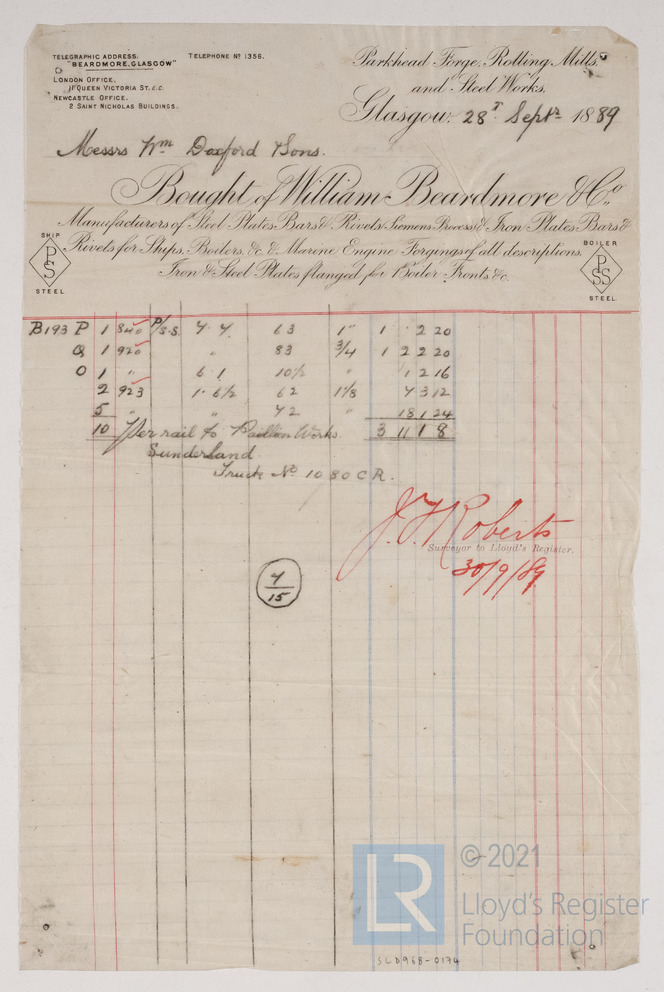 TELEGRAPHIC ADDRESS. TELEPHONE Nº 1356.
"BEARDMORE, GLASGOW"
LONDON OFFICE,
11 QUEEN VICTORIA ST. E.C.
NEWCASTLE OFFICE.
2 SAINT NICHOLAS BUILDINGS.
Parkhead Forge, Rolling Mills,
and Steel Works.
Glasgow. 28T. Septr 1889
Messrs Wm Doxford & Sons.
Bought of William Beardmore & Co.,
Manufacturers of Steel Plates Bars & Rivets, Siemens Process, & Iron Plates, Bars &
Rivets for Ships, Boilers, &c. & Marine Engine Forgings of all descriptions.
Iron & Steel Plates flanged for Boiler Fronts &c.
SHIP
PS
STEEL
BOILER
PSS
STEEL
B193 P 1 840 P/S.S. 4. 4. 63 1" 1 . 2 20
Q 1 920 " 83 3/4 1 2 2 20
O 1 " 6 1 10½ " 1 2 16
2 923 1. 6½ 62 1 1/8 4 3 12
5 " " 42 " 18 1 24
10 Per rail to Pallion Works 3 11 1 8
Sunderland
Truck No 1080 C R.
J. F. Roberts
Surveyor to Lloyd's Register.
30/9/89
4
15
LR
© 2021
Lloyd's Register
Foundation
SLD968-0174